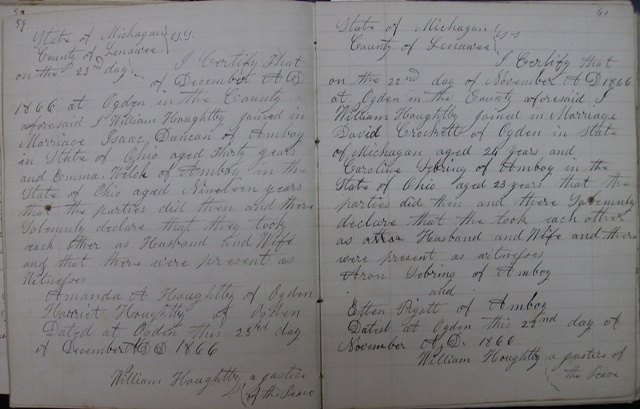 59
State of Michagan } S.S.
County of Lenawee
on the 23rd day } I Certify That
of December A D
1866 at Ogden in the County
aforesaid I William Houghtby joined in
Marriage Isaac Duncan of Amboy
in State of Ohio aged Thirty years
and Emma Welch of Amboy in the
State of Ohio aged Nineteen years
that the parties did then and there
Solemnly declare that they took
each other as Husband and Wife
and that there were present as
Witnesses
Amanda A Houghtby of Ogden
Harriet Houghtby of Ogden
Dated at Ogden this 23rd day
of December A D 1866
William Houghtby a Justice
of the Peace
60
State of Michagan } S-S
County of Lenawee
I Certify that
on the 22nd day of November A D 1866
at Ogden in the County aforesaid I
William Houghtby joined in Marriage
David Crockett of Ogden in State
of Michagan aged 24 years and
Caroline Sebring of Amboy in the
State of Ohio aged 23 years that the
parties did then and there Solemnly
declare that the took each other
as Husband and Wife and there
were present as witnesses
Aron Sebring of Amboy
and
Etten of Amboy
Dated at Ogden this 22nd day of
November A. D. 1866
William Houghtby a Justice of
the Peace